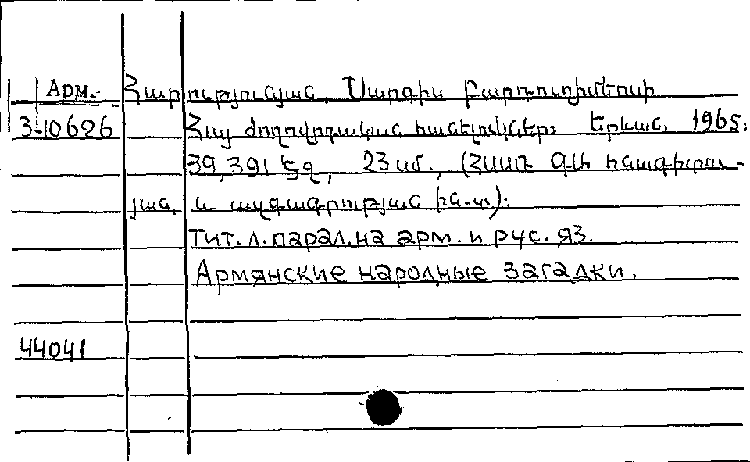 Арм. Հարությունյան, Սարգիս Բարդուղիմեոսի
3-10626 Հայ ժողովրդական հանելուկներ: Երևան, 1965:
39,391 էջ, 23 սմ., (ՀՍՍՌ ԳԱ հնագիտու-
յան և ազգագրության ին-տ):
Тит. л. парал. на арм. и рус. яз.
Армянские народные загадки.
44041